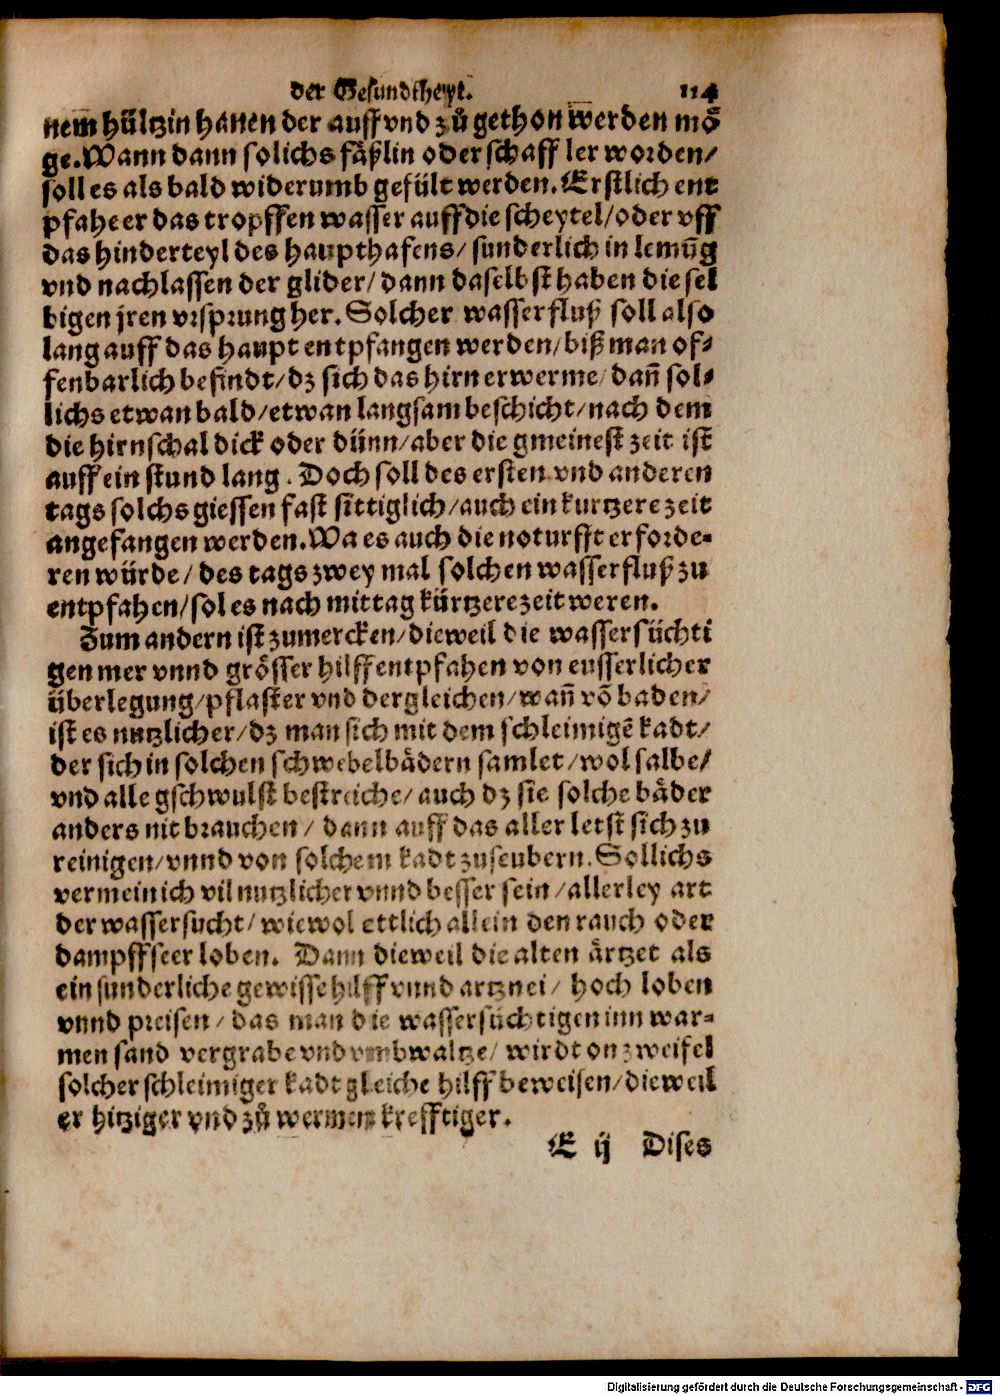 der Gesundtheyt. 114
nem hültzin hanen der auff vnd zů gethon werden mö
ge. Wann dann solichs fäßlin oder schaff ler worden/
soll es als bald widerumb gefült werden. Erstlich ent
pfahe er das tropffen wasser auff die scheytel/oder vff
das hinderteyl des haupthafens/ sunderlich in lemūg
vnd nachlassen der glider/ dann daselbst haben die sel
bigen jren vrsprung her. Solcher wasserfluß soll also
lang auff das haupt entpfangen werden/biß man of⸗
fenbarlich befindt/dz sich das hirn erwerme/dañ sol⸗
lichs etwan bald/etwan langsam beschicht/nach dem
die hirnschal dick oder dünn/aber die gmeinest zeit ist
auff ein stund lang. Doch soll des ersten vnd anderen
tags solchs giessen fast sittiglich/auch ein kurtzere zeit
angefangen werden. Wa es auch die noturfft erforde⸗
ren würde/ des tags zwey mal solchen wasserfluß zu
entpfahen/sol es nach mittag kürtzere zeit weren.
Zum andern ist zumercken/dieweil die wassersüchti
gen mer vnnd grösser hilff entpfahen von eusserlicher
überlegung/pflaster vnd dergleichen/wañ võ baden/
ist es nutzlicher/dz man sich mit dem schleimigē kadt/
der sich in solchen schwebelbädern samlet/wol salbe/
vnd alle gschwulst bestreiche/auch dz sie solche bäder
anders nit brauchen/ dann auff das aller letst sich zu
reinigen/vnnd von solchem kadt zuseubern. Sollichs
vermein ich vil nutzlicher vnnd besser sein/allerley art
der wassersucht/ wiewol ettlich allein den rauch oder
dampff seer loben. Dann dieweil die alten ärtzet als
ein sunderliche gewisse hilff vnnd artznei/ hoch loben
vnnd preisen/ das man die wassersüchtigen inn war⸗
men sand vergrabe vnd vmbwaltze/ wirdt on zweifel
solcher schleimiger kadt gleiche hilff beweisen/dieweil
er hitziger vnd zů wermen krefftiger.
E ij Dises
Digitalisierung gefördert durch die Deutsche Forschungsgemeinschaft - DFG